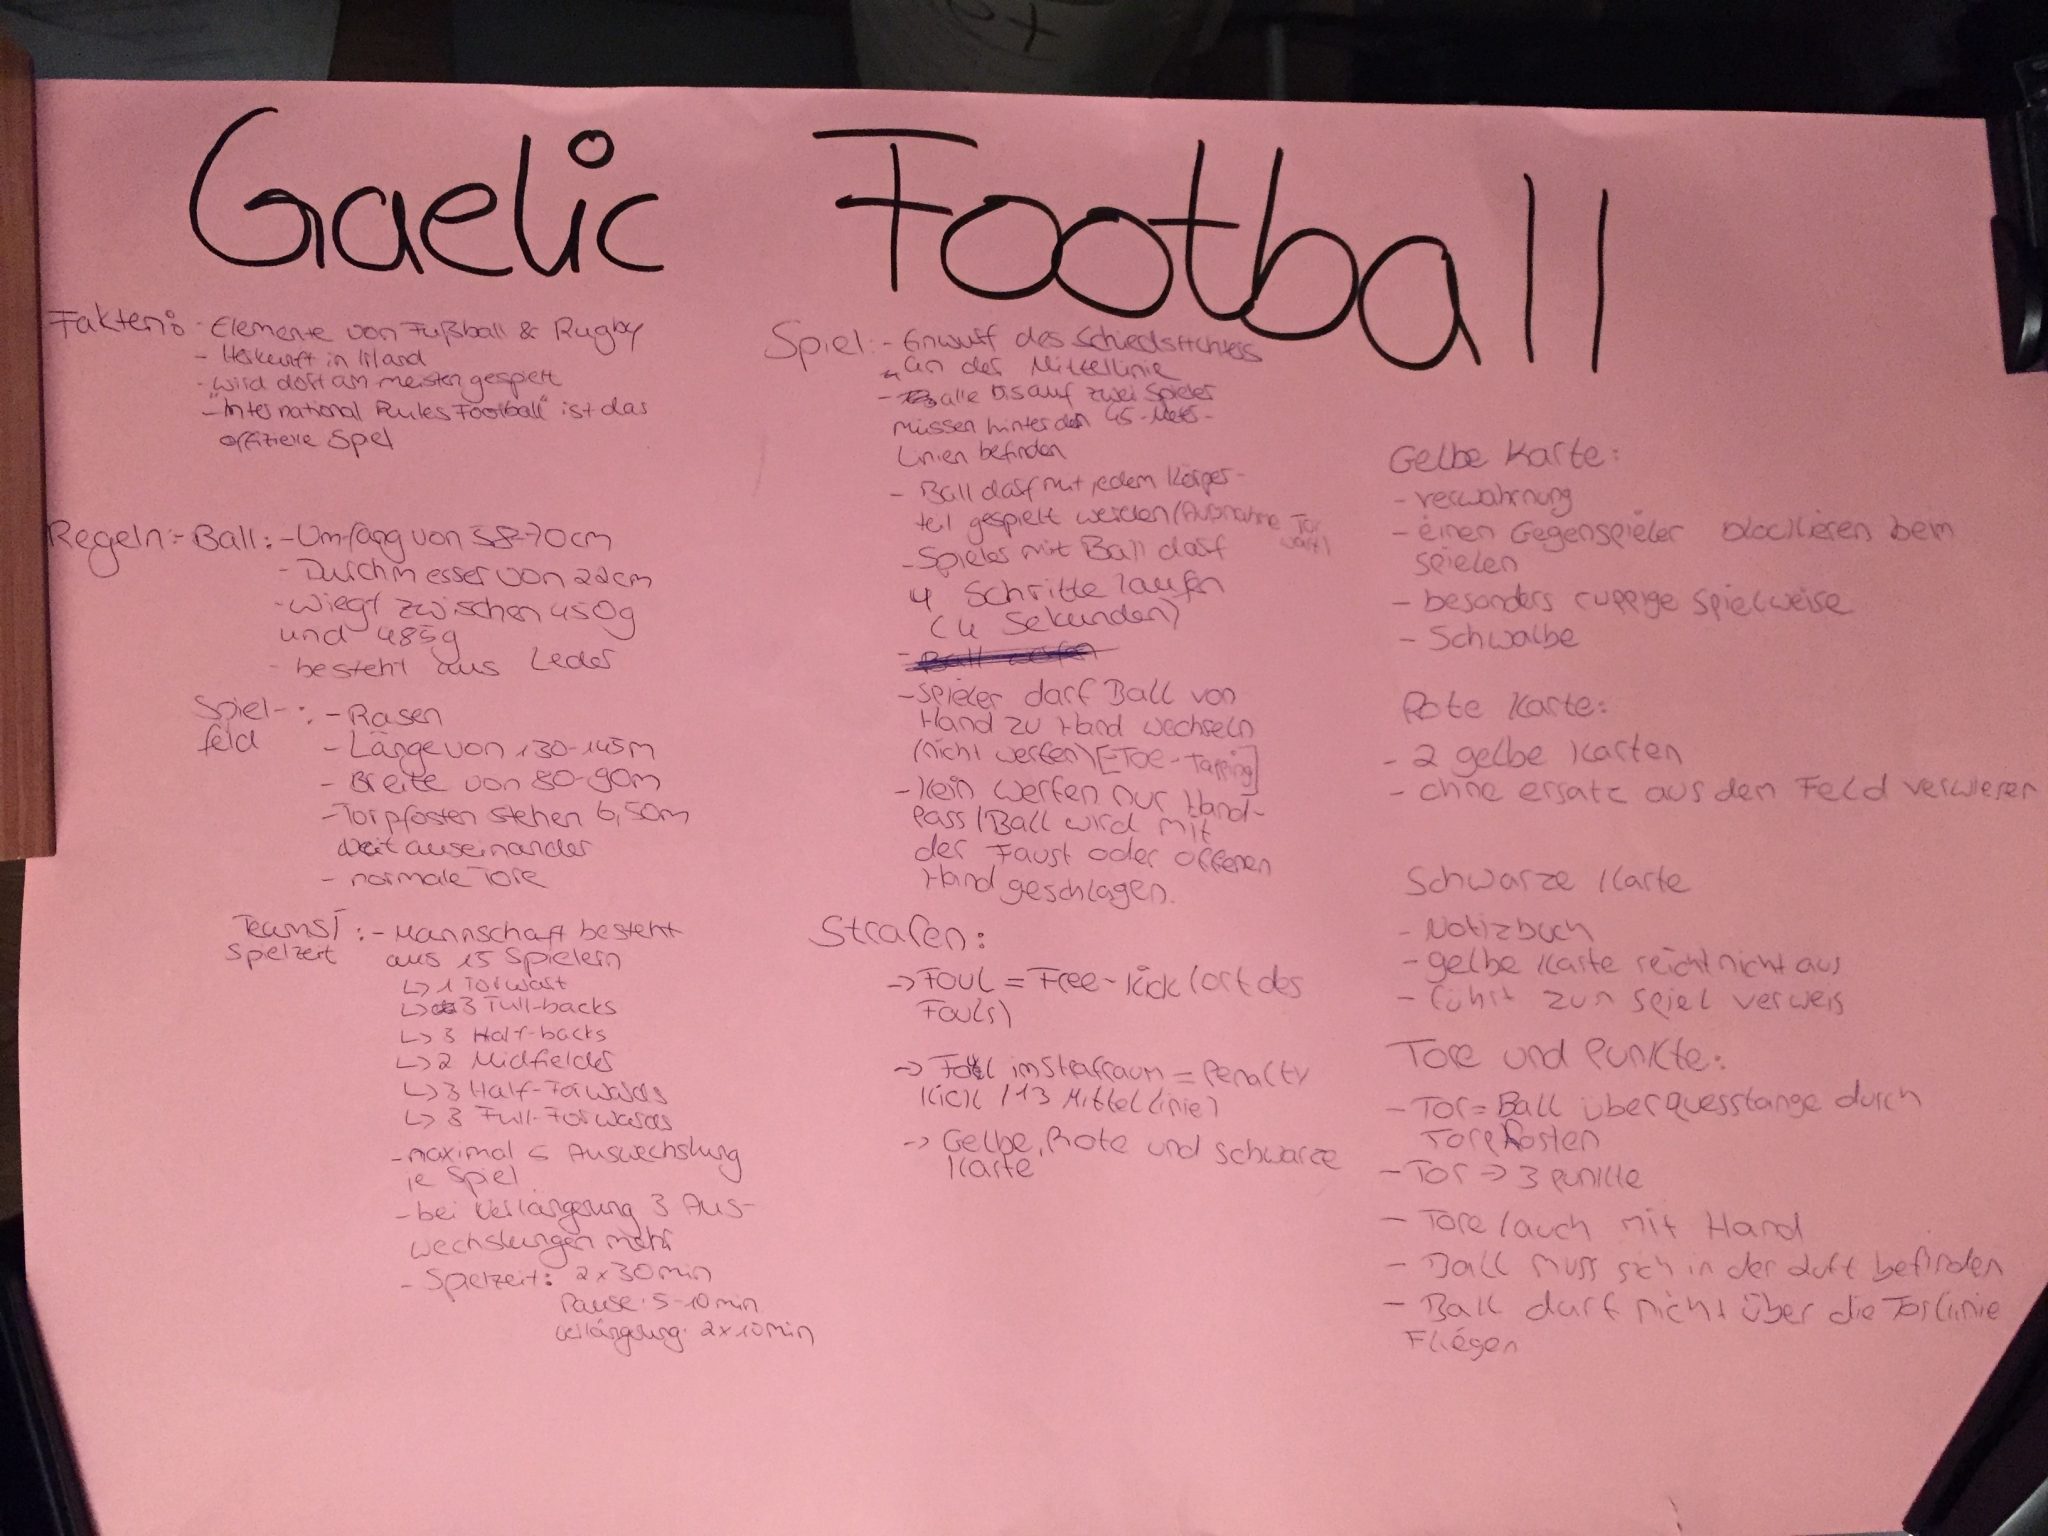 Gaelic Football
Fakten: - Elemente von Fußball & Rugby
- Herkunft in Irland
- wird dort am meisten gespielt
- "International Rules Football" ist das
offizielle Spiel
Regeln: - Ball: - Umfang von 58-70cm
- Durchmesser von 22cm
- wiegt zwischen 450g
und 485g
- besteht aus Leder
Spiel- : - Rasen
feld - Länge von 130-145m
- Breite von 80-90m
- Torpfosten stehen 6,50m
weit auseinander
- normale Tore
Teams/ : - Mannschaft besteht
Spielzeit aus 15 Spielern
↳ 1 Torwart
↳ 3 Full-backs
↳ 3 Half-backs
↳ 2 Midfielder
↳ 3 Half-Forwards
↳ 3 Full-Forwards
- maximal 5 Auswechslung
je Spiel
- bei Verlängerung 3 Aus-
wechslungen mehr
- Spielzeit: 2x30min
Pause: 5-10min
Verlängerung: 2x10min
Spiel: - Einwurf des Schiedsrichters
an der Mittellinie
- alle bis auf zwei Spieler
müssen hinter den 45-Meter-
Linien befinden
- Ball darf mit jedem Körper-
teil gespielt werden (Außnahme Tor
wart)
- Spieler mit Ball darf
4 Schritte laufen
(4 Sekunden)
- Ball werfen
- Spieler darf Ball von
Hand zu Hand wechseln
(nicht werfen) [-Toe-Tapping]
- Kein werfen nur Hand-
pass (Ball wird mit
der Faust oder offenen
Hand geschlagen.
Strafen:
-> Foul = Free-Kick (ort des
Fouls)
-> Foul im Strafraum = Penalty
Kick (13 Mittellinie)
-> Gelbe, Rote und schwarze
Karte
Gelbe Karte:
- verwahrnung
- einen Gegenspieler blockieren beim
spielen
- besonders ruppige Spielweise
- Schwalbe
Rote Karte:
- 2 gelbe Karten
- ohne ersatz aus dem Feld verwiesen
Schwarze Karte
- Notizbuch
- gelbe Karte reicht nicht aus
- führt zum Spiel verweis
Tore und Punkte:
- Tor = Ball über querstange durch
Torpfosten
- Tor -> 3 punkte
- Tore (auch mit Hand
- Ball muss sich in der Luft befinden
- Ball darf nicht über die Torlinie
Fliegen